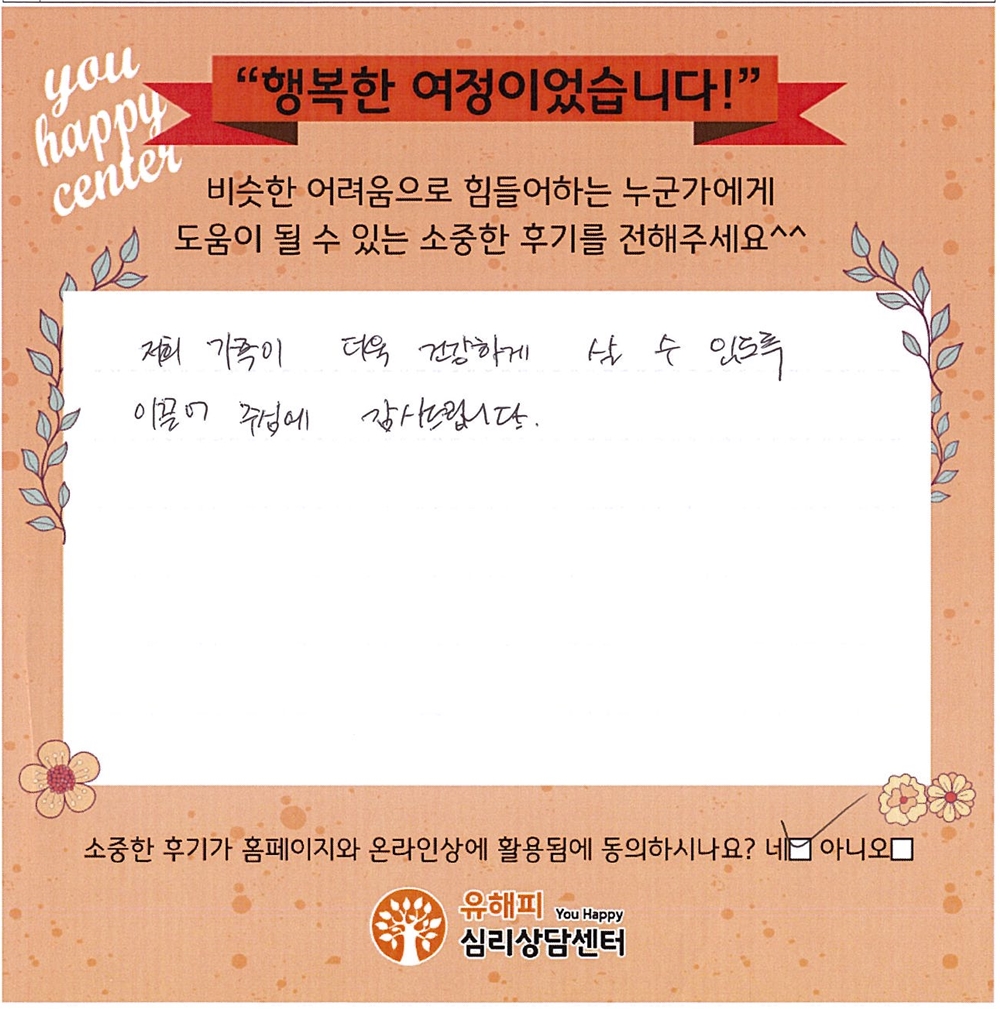 you
happy
center
“행복한 여정이었습니다!”
비슷한 어려움으로 힘들어하는 누군가에게
도움이 될 수 있는 소중한 후기를 전해주세요^^
저희 가족이 더욱 건강하게 살 수 있도록
이끌어 주심에 감사드립니다.
소중한 후기가 홈페이지와 온라인상에 활용됨에 동의하시나요? 네 아니오
유해피 You Happy
심리상담센터